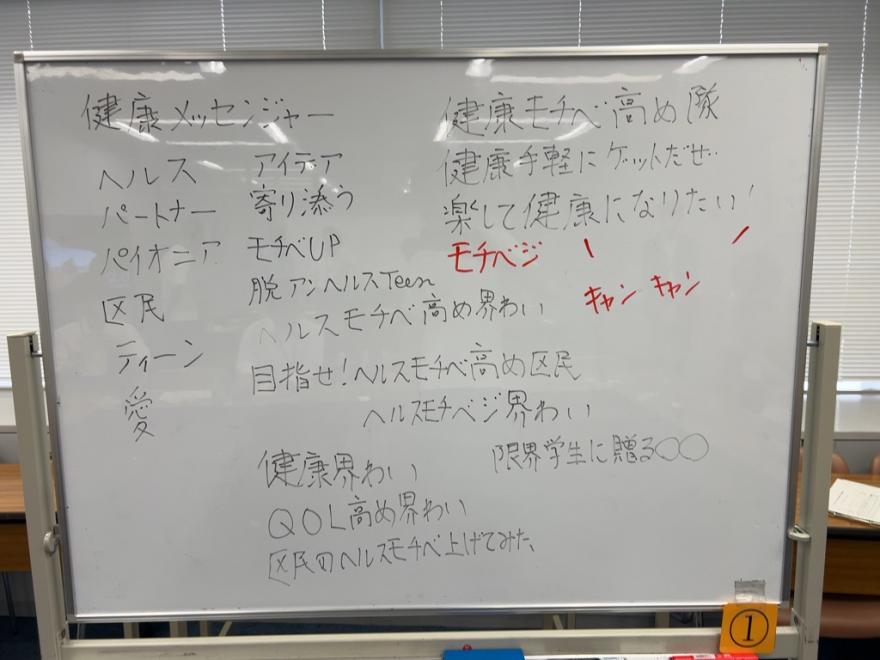 健康メッセンジャー
ヘルス
パートナー
パイオニア
区民
ティーン
愛
アイデア
寄り添う
モチベUP
脱アンヘルスTeen
ヘルスモチベ高め界わい
目指せ!ヘルスモチベ高め区民
ヘルスモチベジ界わい
健康界わい
QOL高め界わい
区民のヘルスモチベ上げてみた、
健康モチベ高め隊
健康手軽にゲットだぜ
楽して健康になりたい!
モチベジ \ /
キャンキャン
限界学生に贈る○○
①